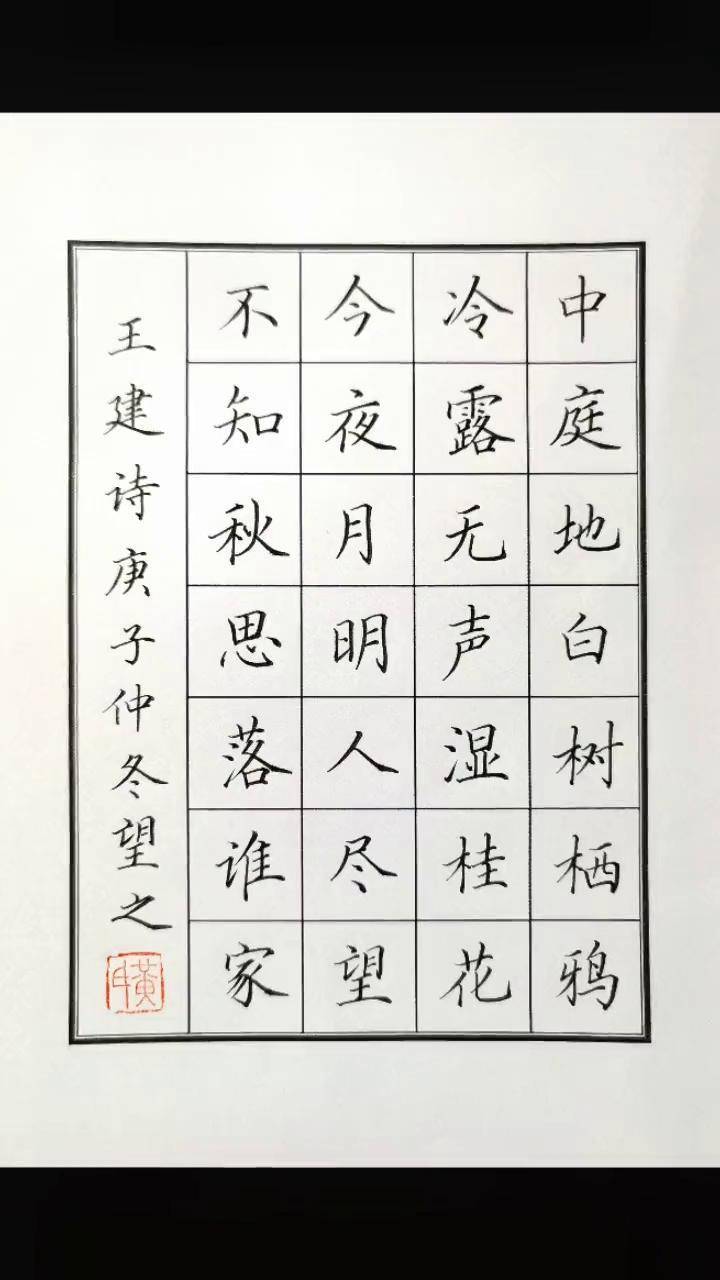 中庭地白树栖鸦
冷露无声湿桂花
今夜月明人尽望
不知秋思落谁家
王建诗庚子仲冬望之